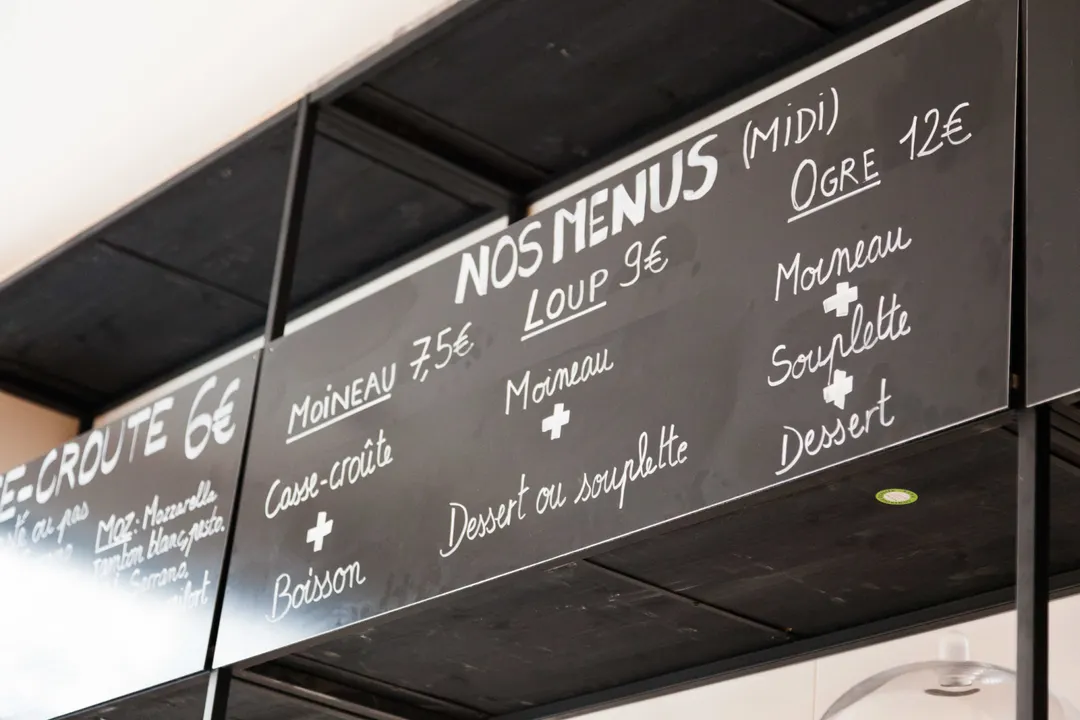 E-CROUTE 6€
ou pas
MOZ: Mozzarella
Jambon blanc, pesto,
Serrano,
NOS MENUS (MIDI)
MOINEAU 7,5€
Casse-croûte
+
Boisson
LOUP 9€
Moineau
+
Dessert ou souplette
OGRE 12€
Moineau
+
Souplette
+
Dessert